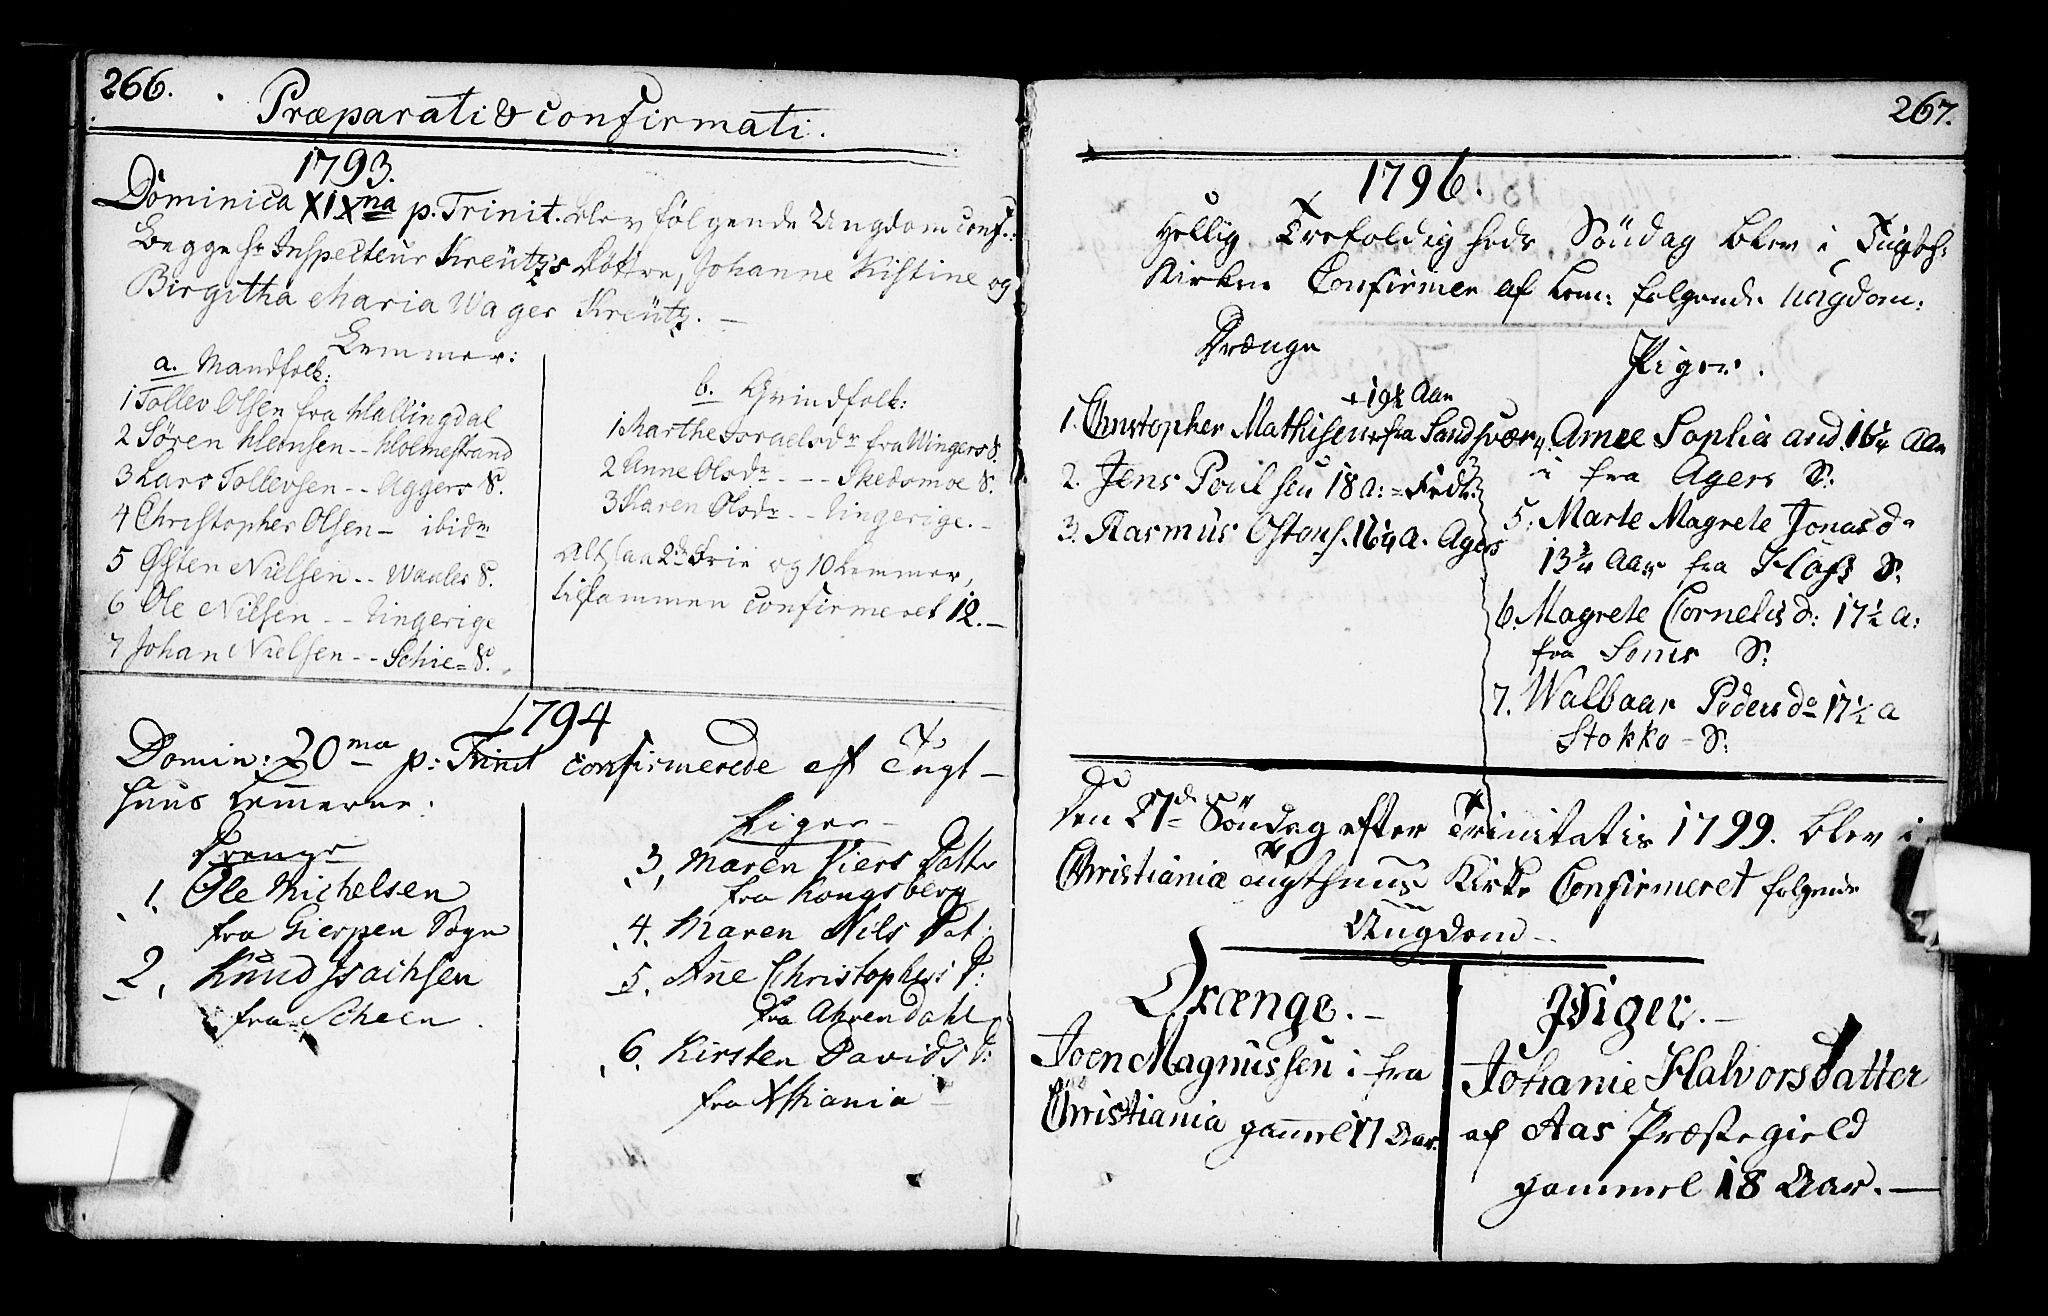 266.
Præparati & confirmati.
1793.
Dominica XIXna p. Trinit. blev følgende Ungdom conf.:
Begge Hr Inspecteur Kreütz's Døttre, Johanne Kistine og
Birgitha Maria Wager Kreütz. —
Lemmer:
a. Mandfolk:
1 Tollev Olsen fra Hallingdal
2 Sören Hemsen -- Holmestrand
3 Lars Tollevsen -- Aggers S.
4 Christopher Olsen - ibidm
5 Østen Nielsen -- Waaler S.
6 Ole Nilsen -- Ringerige
7 Johan Nielsen -- Schie = S.
b. Qvindfolk:
1 Marthe Israelsdr fra Wingers S.
2 Anne Olsdr - - - Skedsmoe S.
3 Karen Olsdr -- Ringerige. -
Altsaa 2de Frie og 10 Lemmer,
tilsammen confirmeret 12. —
1794
Domin: 20ma p: Trinit confirmerede af Tugt-
huus Lemmerne:
Drenge
1. Ole Michelsen
fra Gierpen Sogn
2. Knud Isachsen
fra Scheen.
Piger
3. Maren Piers Datter
fra Kongsberg
4. Maren Nils Dat:
5. Ane Christophers D:
fra Ahrendahl
6. Kirsten Davids D:
fra Xstiania
267.
1796.
Hellig Trefoldigheds Söndag blev i Tugth:
Kirken Confirmer af Lem: følgende Ungdom:
Drænge
+ 19½ Aar
1. Christopher Mathisen fra Sandsvær
2. Jens Poulsen 18 a: = Fredr:
3. Rasmus Ostens. 16¼ a. Agers
Piger.
4. Amee Sophia and. 16¼ Aar
i fra Agers S:
5. Marte Magrete Jonasd
13¾ Aar fra Hafs S:
6. Magrete Cornelisd: 17½ a:
fra Soner S:
7. Walbaar Pedersd 17½ a
Stokko = S:
Den 27de Söndag efter Trinitatis 1799. blev i
Christianiæ Tugthuus Kirke Confirmeret følgende
Ungdom -
Drænge. -
Joen Magnussen i fra
Christiania gammel 17 Aar.
Piger. -
Johanne Halvorsdatter
af Aas Præstegield
gammel 18 Aar. —